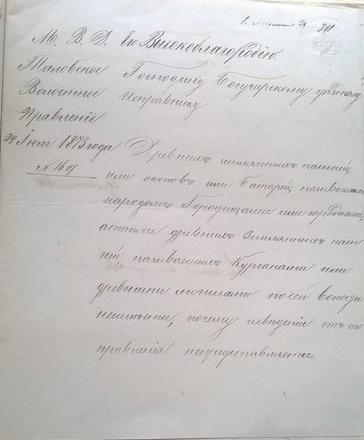 М. В. Д. Его Высокоблагородію
Маловское Господину Богучарскому уѣздному
Волостное Исправнику
Правленіе
24 Іюля 1873 года
№ 1607
Древнихъ землянныхъ насыпей
или окоповъ или батарей называемыхъ
народомъ Городищами или городками,
а также древнихъ Землянныхъ насы
пей, называемыхъ Курганами или
древними могилами по сей волости
неимѣется, почему свѣденій отъ
правленія непредставляется.